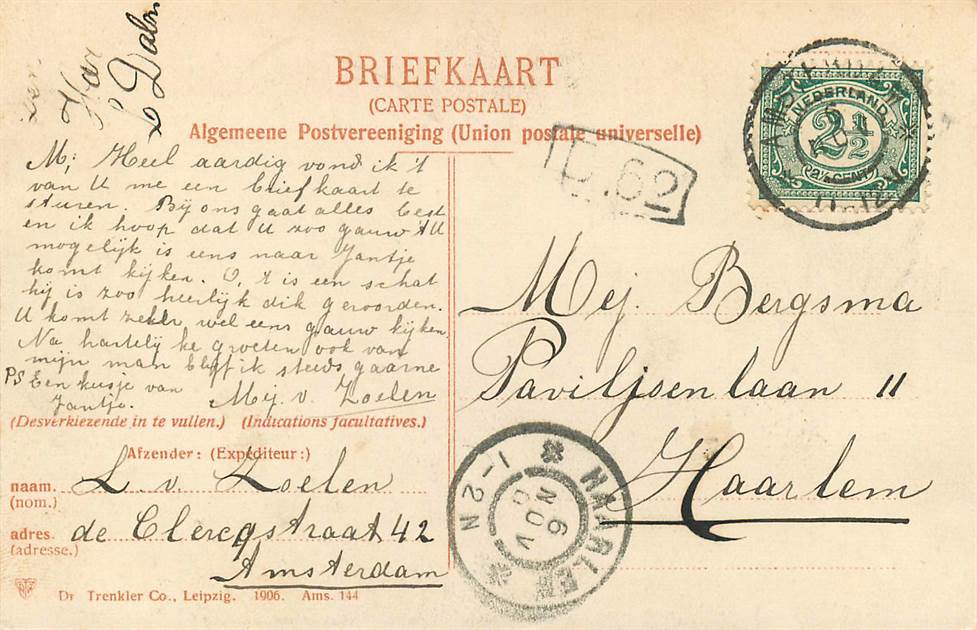 BRIEFKAART
(CARTE POSTALE)
Algemeene Postvereeniging (Union postale universelle)
NEDERLAND
2 1/2
2½ CENT
AMSTERDAM
11-12
D.62
M; Heel aardig vond ik 't
van U me een briefkaart te
sturen. Bij ons gaat alles best
en ik hoop dat U zoo gauw 't U
mogelijk is eens naar Jantje
komt kijken. O, 't is een schat
hij is zoo heerlijk dik geworden.
U komt zeker wel eens gauw kijken
Na hartelijke groeten ook van
mijn man blijf ik steeds gaarne
Mej. v. Zoelen
PS Een kusje van
Jantje.
Mej. Bergsma
Paviljoenlaan 11
Haarlem
(Desverkiezende in te vullen.) (Indications facultatives.)
Afzender: (Expéditeur:)
naam. L. v. Zoelen
(nom.)
adres. de Clercqstraat 42
(adresse.)
Amsterdam
HAARLEM
1-2N
9 NOV
Dr Trenkler Co., Leipzig. 1906. Ams. 144